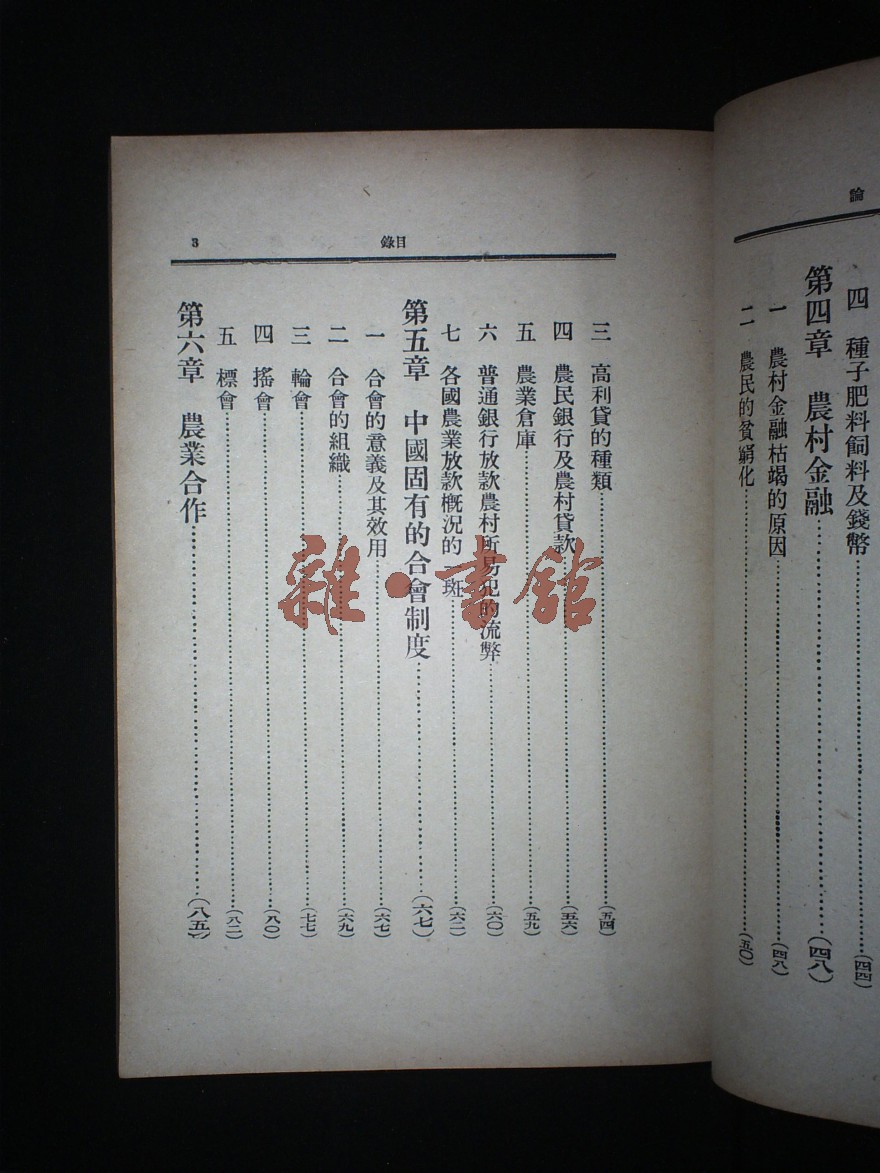 論
四 種子肥料飼料及錢幣……(四四)
第四章 農村金融……(四八)
一 農村金融枯竭的原因……(四八)
二 農民的貧窮化……(五〇)
錄目
3
三 高利貸的種類……(五四)
四 農民銀行及農村貸款……(五六)
五 農業倉庫……(五九)
六 普通銀行放款農村所易犯的流弊……(六〇)
七 各國農業放款概況的一斑……(六二)
第五章 中國固有的合會制度……(六七)
一 合會的意義及其效用……(六七)
二 合會的組織……(六九)
三 輪會……(七七)
四 搖會……(八〇)
五 標會……(八二)
第六章 農業合作……(八五)
雜·書館